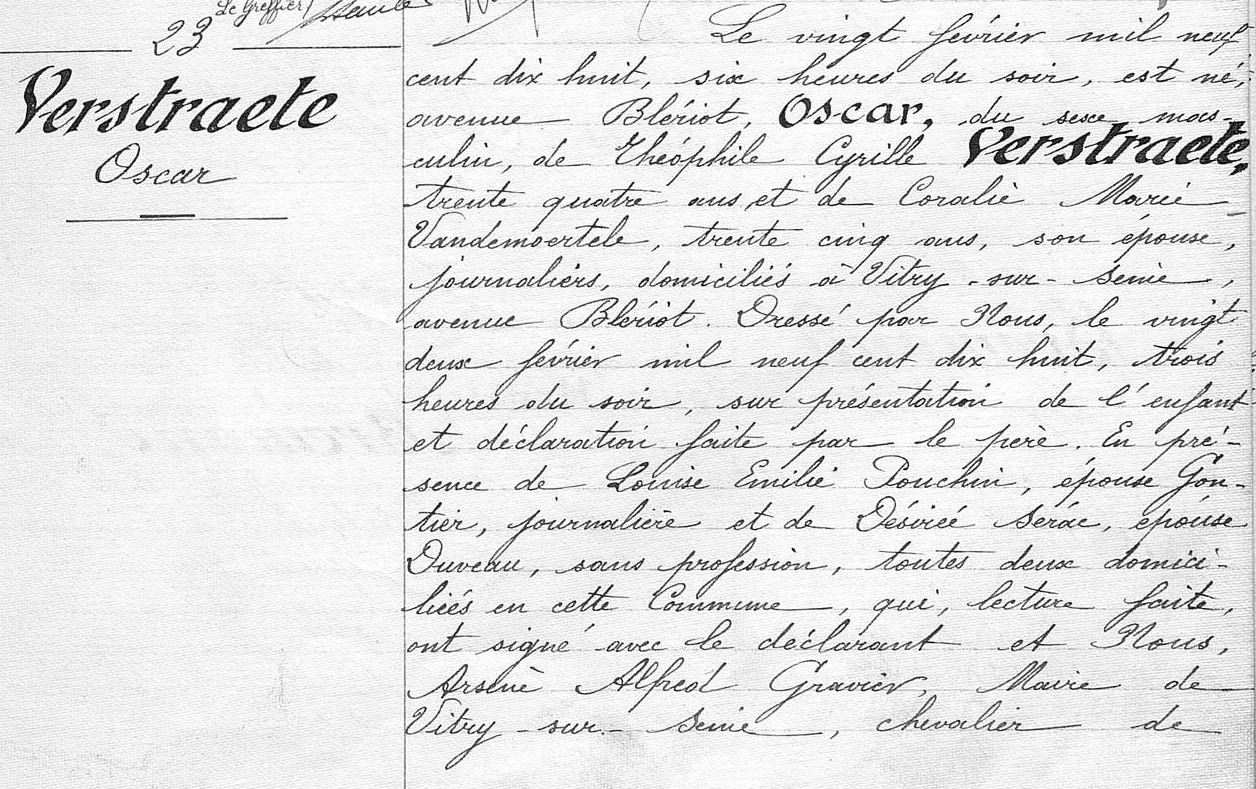 Le Greffier,
23
Verstraete
Oscar
Le vingt février mil neuf
cent dix huit, six heures du soir, est né,
avenue Blériot, Oscar, du sexe mas-
culin, de Théophile Cyrille Verstraete,
trente quatre ans, et de Coralie Marie
Vandemoertele, trente cinq ans, son épouse,
journaliers, domiciliés à Vitry-sur-Seine,
avenue Blériot. Dressé par Nous, le vingt
deux février mil neuf cent dix huit, trois
heures du soir, sur présentation de l'enfant
et déclaration faite par le père. En pré-
sence de Louise Emilie Pouchin, épouse Gon-
tier, journalière et de Désirée Serac, épouse
Duveau, sans profession, toutes deux domici-
liées en cette Commune, qui, lecture faite,
ont signé avec le déclarant et Nous,
Arsène Alfred Gravier, Maire de
Vitry-sur-Seine, chevalier de